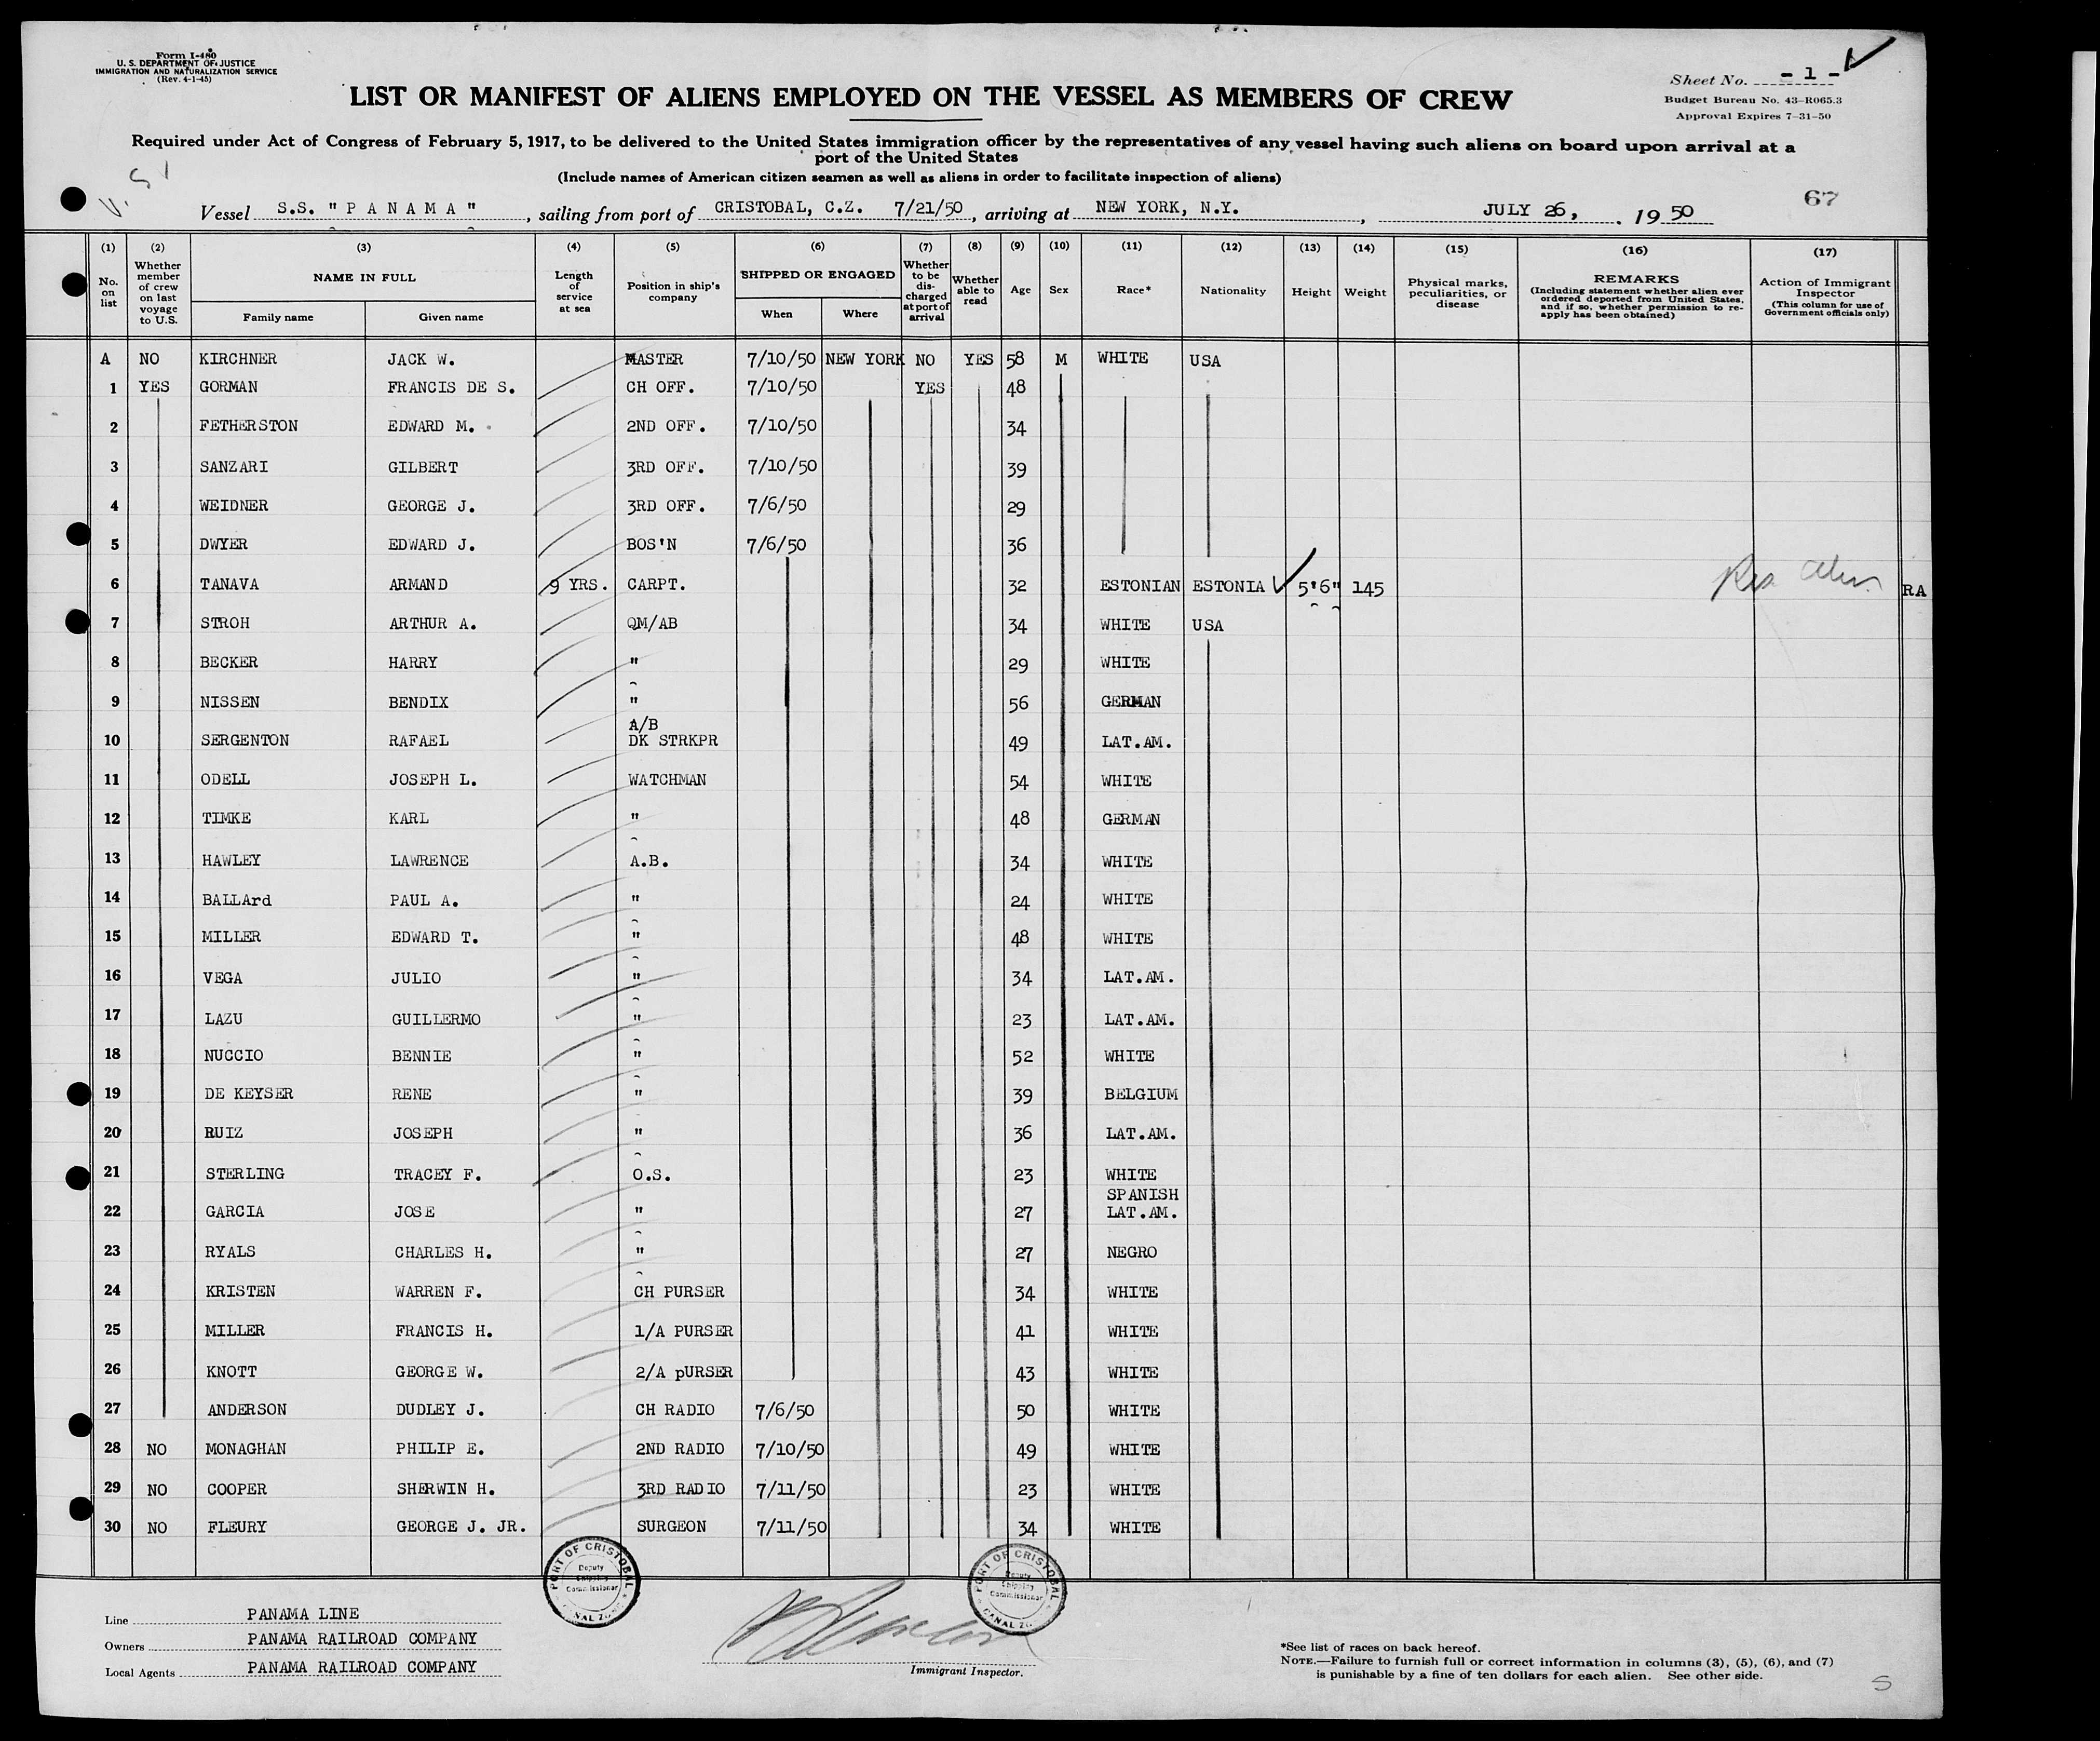 Form I-480
U. S. DEPARTMENT OF JUSTICE
IMMIGRATION AND NATURALIZATION SERVICE
(Rev. 4-1-45)
Sheet No. - 1 -
Budget Bureau No. 43-R065.3
Approval Expires 7-31-50
LIST OR MANIFEST OF ALIENS EMPLOYED ON THE VESSEL AS MEMBERS OF CREW
Required under Act of Congress of February 5, 1917, to be delivered to the United States immigration officer by the representatives of any vessel having such aliens on board upon arrival at a
port of the United States
(Include names of American citizen seamen as well as aliens in order to facilitate inspection of aliens)
67
Vessel S.S. "PANAMA", sailing from port of CRISTOBAL, C.Z. 7/21/50, arriving at NEW YORK, N.Y., JULY 26, 1950
(1) No. on list
(2) Whether member of crew on last voyage to U.S.
(3) NAME IN FULL
Family name Given name
(4) Length of service at sea
(5) Position in ship's company
(6) SHIPPED OR ENGAGED
When Where
(7) Whether to be discharged at port of arrival
(8) Whether able to read
(9) Age
(10) Sex
(11) Race*
(12) Nationality
(13) Height
(14) Weight
(15) Physical marks, peculiarities, or disease
(16) REMARKS (Including statement whether alien ever ordered deported from United States, and if so, whether permission to re-apply has been obtained)
(17) Action of Immigrant Inspector (This column for use of Government officials only)
A NO KIRCHNER JACK W. MASTER 7/10/50 NEW YORK NO YES 58 M WHITE USA
1 YES GORMAN FRANCIS DE S. CH OFF. 7/10/50 YES 48
2 FETHERSTON EDWARD M. 2ND OFF. 7/10/50 34
3 SANZARI GILBERT 3RD OFF. 7/10/50 39
4 WEIDNER GEORGE J. 3RD OFF. 7/6/50 29
5 DWYER EDWARD J. BOS'N 7/6/50 36
6 TANAVA ARMAND 9 YRS. CARPT. 32 ESTONIAN ESTONIA 5'6" 145 Res Alien RA
7 STROH ARTHUR A. QM/AB 34 WHITE USA
8 BECKER HARRY " 29 WHITE
9 NISSEN BENDIX " 56 GERMAN
10 SERGENTON RAFAEL A/B DK STRKPR 49 LAT.AM.
11 ODELL JOSEPH L. WATCHMAN 54 WHITE
12 TIMKE KARL " 48 GERMAN
13 HAWLEY LAWRENCE A.B. 34 WHITE
14 BALLArd PAUL A. " 24 WHITE
15 MILLER EDWARD T. " 48 WHITE
16 VEGA JULIO " 34 LAT.AM.
17 LAZU GUILLERMO " 23 LAT.AM.
18 NUCCIO BENNIE " 52 WHITE
19 DE KEYSER RENE " 39 BELGIUM
20 RUIZ JOSEPH " 36 LAT.AM.
21 STERLING TRACEY F. O.S. 23 WHITE
22 GARCIA JOSE " 27 SPANISH LAT.AM.
23 RYALS CHARLES H. " 27 NEGRO
24 KRISTEN WARREN F. CH PURSER 34 WHITE
25 MILLER FRANCIS H. 1/A PURSER 41 WHITE
26 KNOTT GEORGE W. 2/A pURSER 43 WHITE
27 ANDERSON DUDLEY J. CH RADIO 7/6/50 50 WHITE
28 NO MONAGHAN PHILIP E. 2ND RADIO 7/10/50 49 WHITE
29 NO COOPER SHERWIN H. 3RD RADIO 7/11/50 23 WHITE
30 NO FLEURY GEORGE J. JR. SURGEON 7/11/50 34 WHITE
PORT OF CRISTOBAL Deputy Shipping Commissioner CANAL ZONE
PORT OF CRISTOBAL Deputy Shipping Commissioner CANAL ZONE
Line PANAMA LINE
Owners PANAMA RAILROAD COMPANY
Local Agents PANAMA RAILROAD COMPANY
Immigrant Inspector.
*See list of races on back hereof.
NOTE.—Failure to furnish full or correct information in columns (3), (5), (6), and (7)
is punishable by a fine of ten dollars for each alien. See other side.